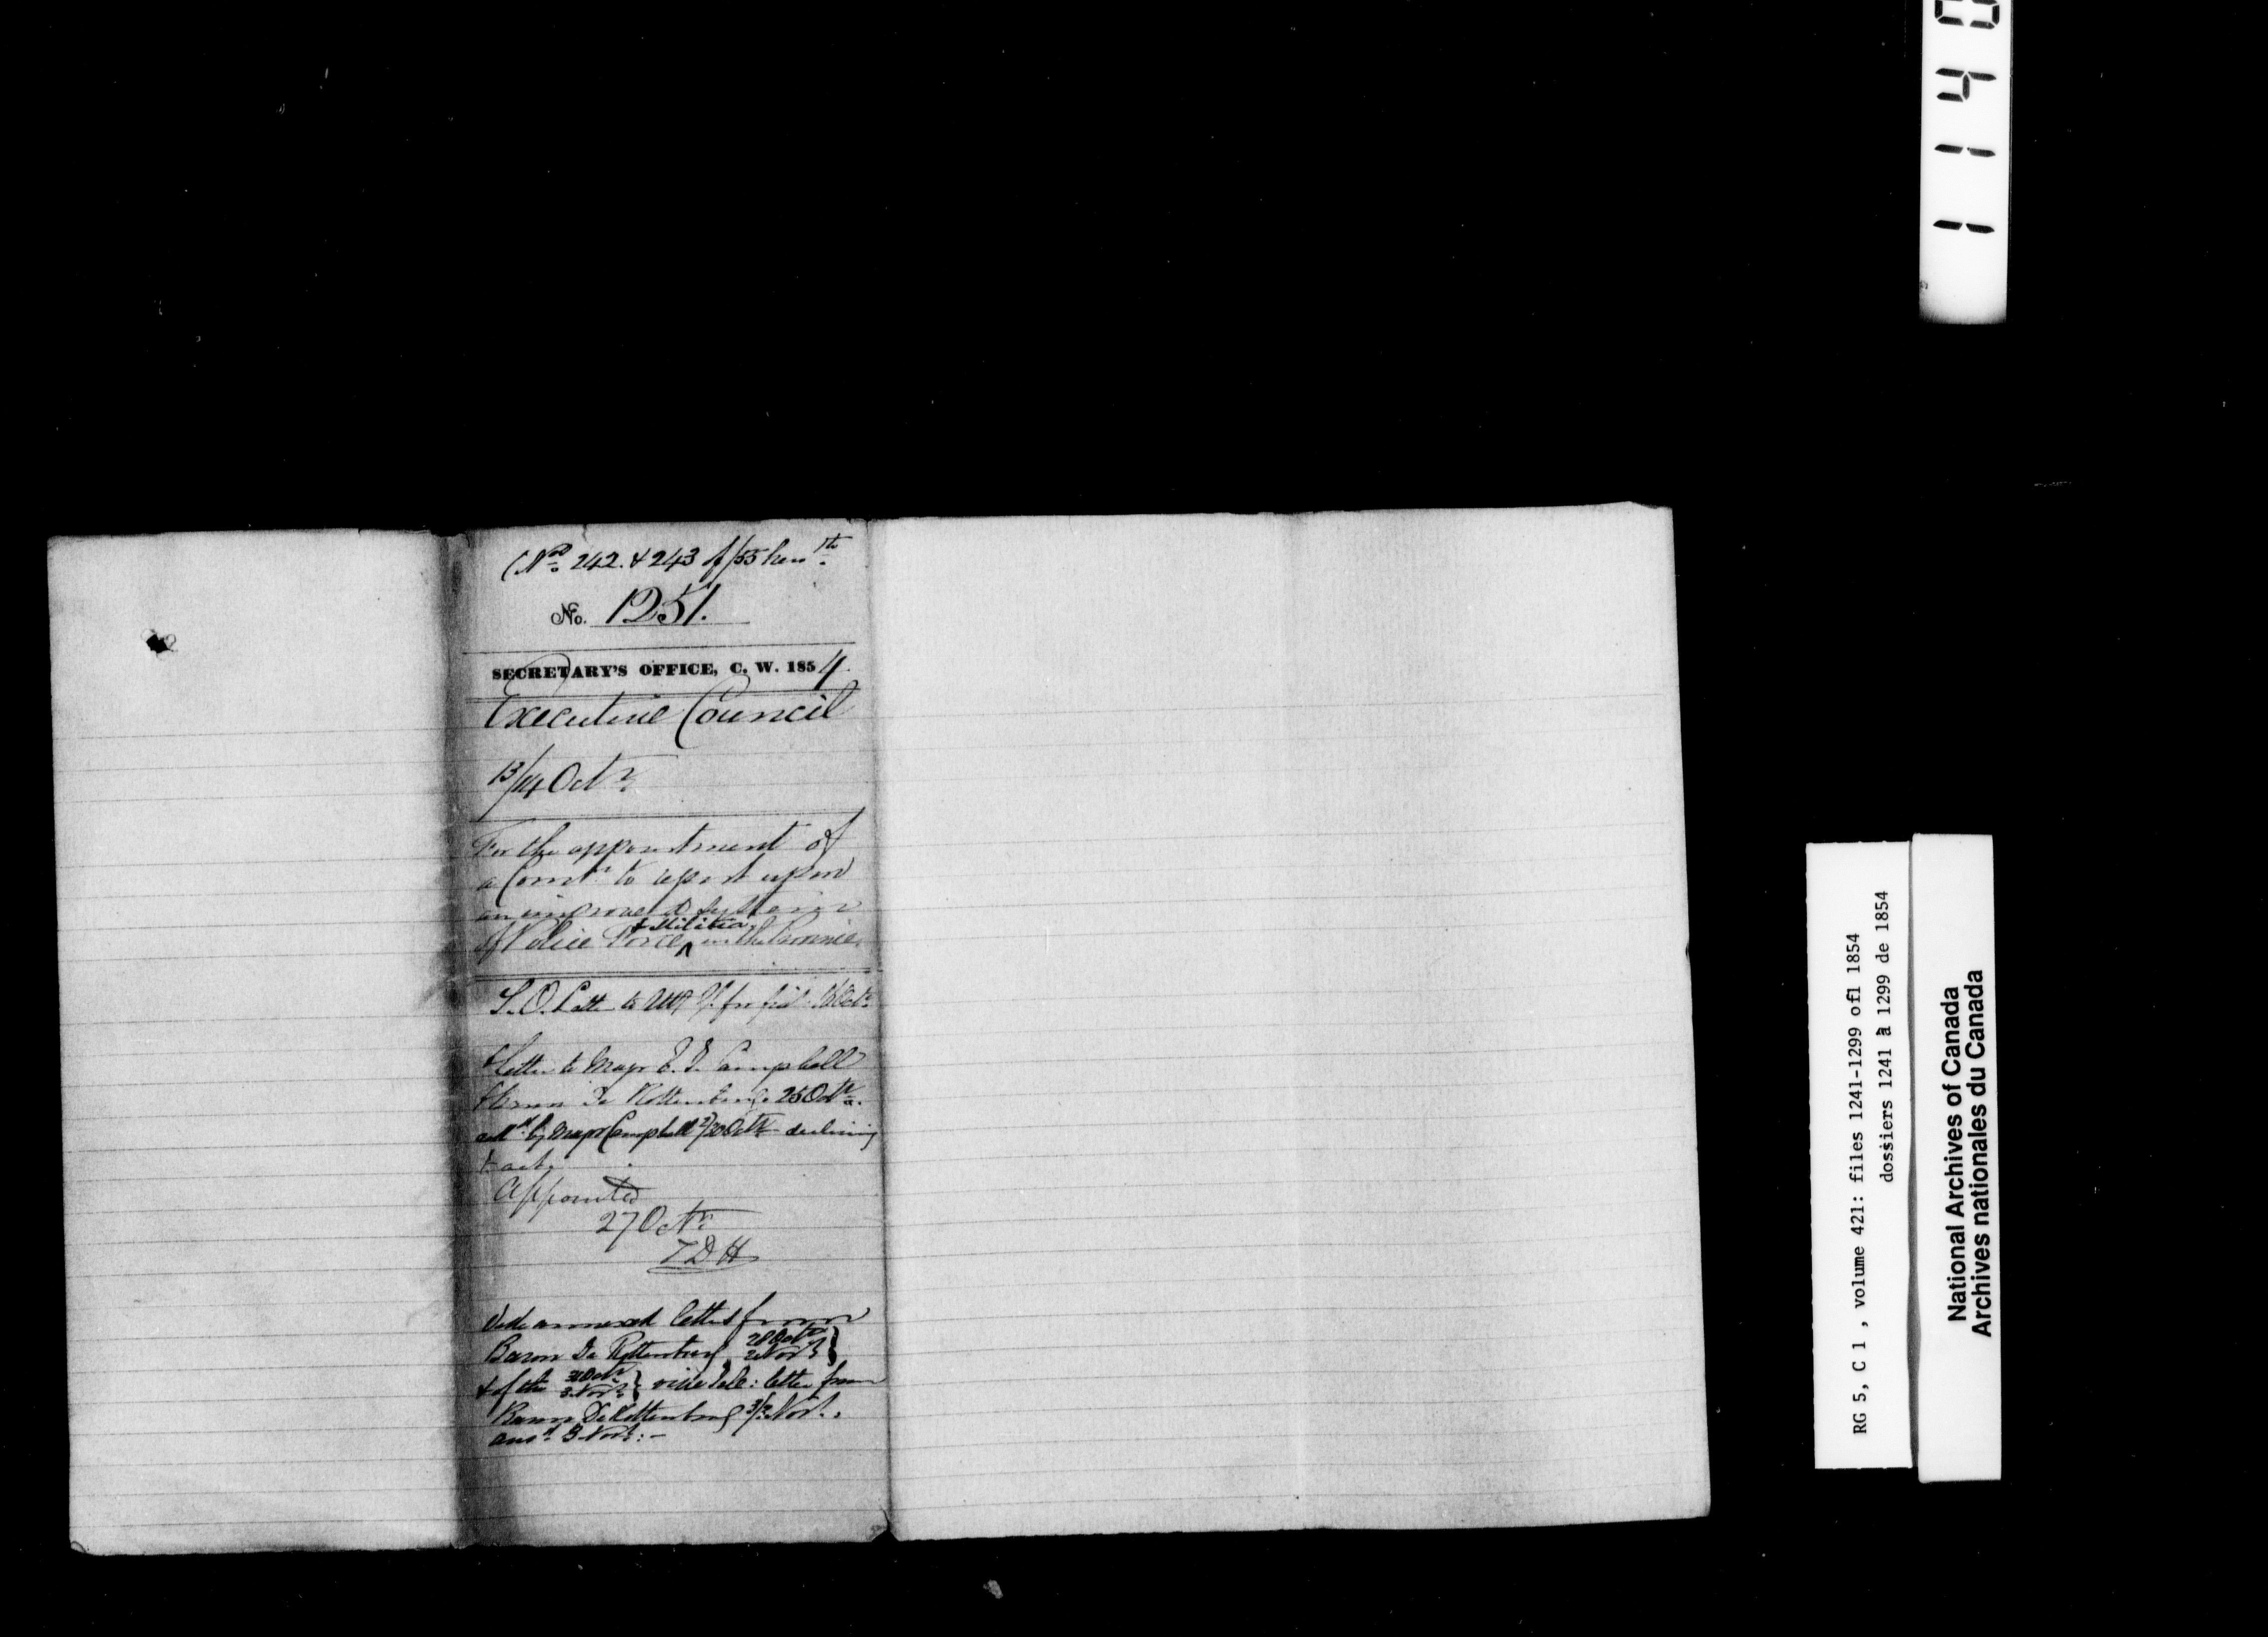 (Nos. 242. & 243 of/55 herewth.
No. 1251.
SECRETARY'S OFFICE, C. W. 1854.
Executive Council
13/14 Octr.
For the appointment of
a Comn. to report upon
an improved system
of Police Force & Militia in the Province
S. O. Letter to
Letter to Major E. T. Campbell
& Baron De Rottenburg 25 Octr.
by Major Campbell 27/30 Octr. declining
to act.
Appointed
27 Octr.
T D H
Vide annexed letters from
Baron De Rottenburg 28 Octr. 2 Novr. }
& of the 31 Octr. 3 Novr. } vide letter from
Baron De Rottenburg 3/3 Novr.
ansd. 3 Novr. : -
1140
RG 5, C 1 , volume 421: files 1241-1299 of1 1854
dossiers 1241 à 1299 de 1854
National Archives of Canada
Archives nationales du Canada